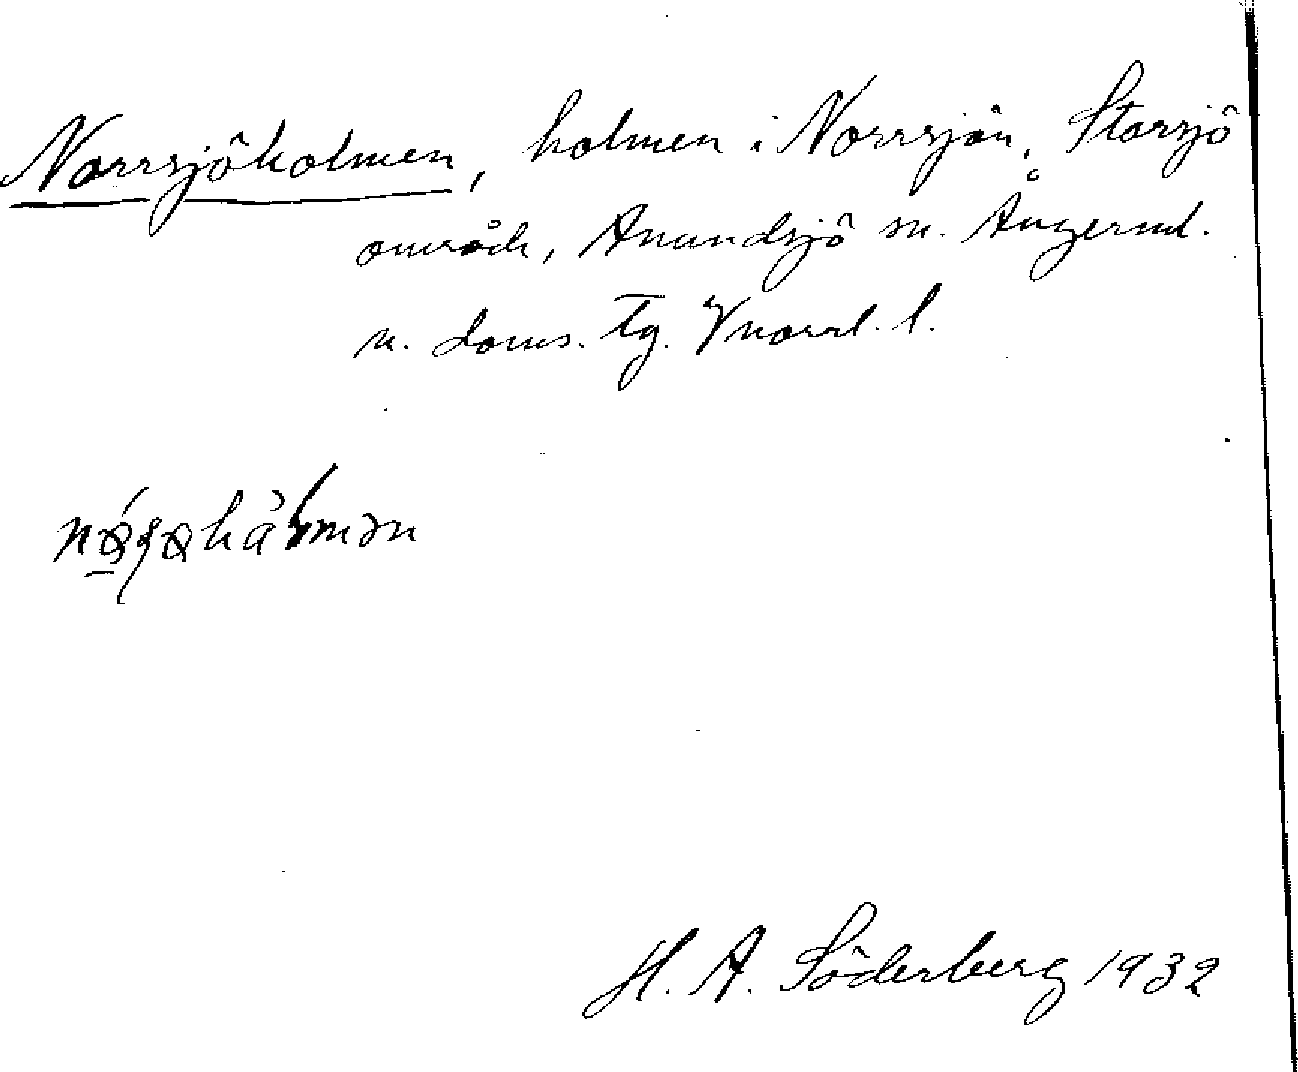 Norrsjöholmen, holmen i Norrsjön, Storsjö
område, Anundsjö sn. Ångerml.
n. doms. tg. Vnorrl. l.
H. A. Söderberg 1932